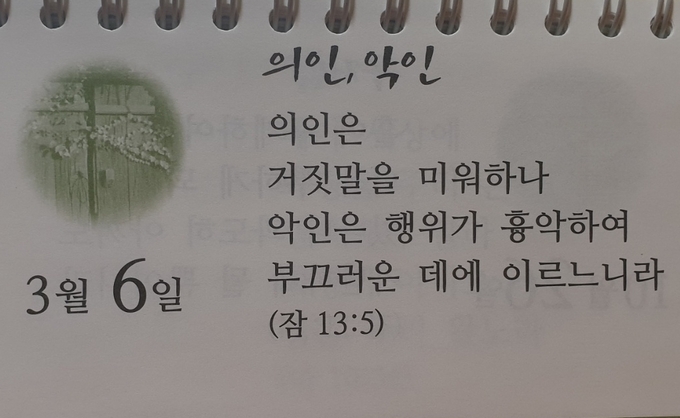 의인, 악인
의인은
거짓말을 미워하나
악인은 행위가 흉악하여
부끄러운 데에 이르느니라
(잠 13:5)
3월 6일